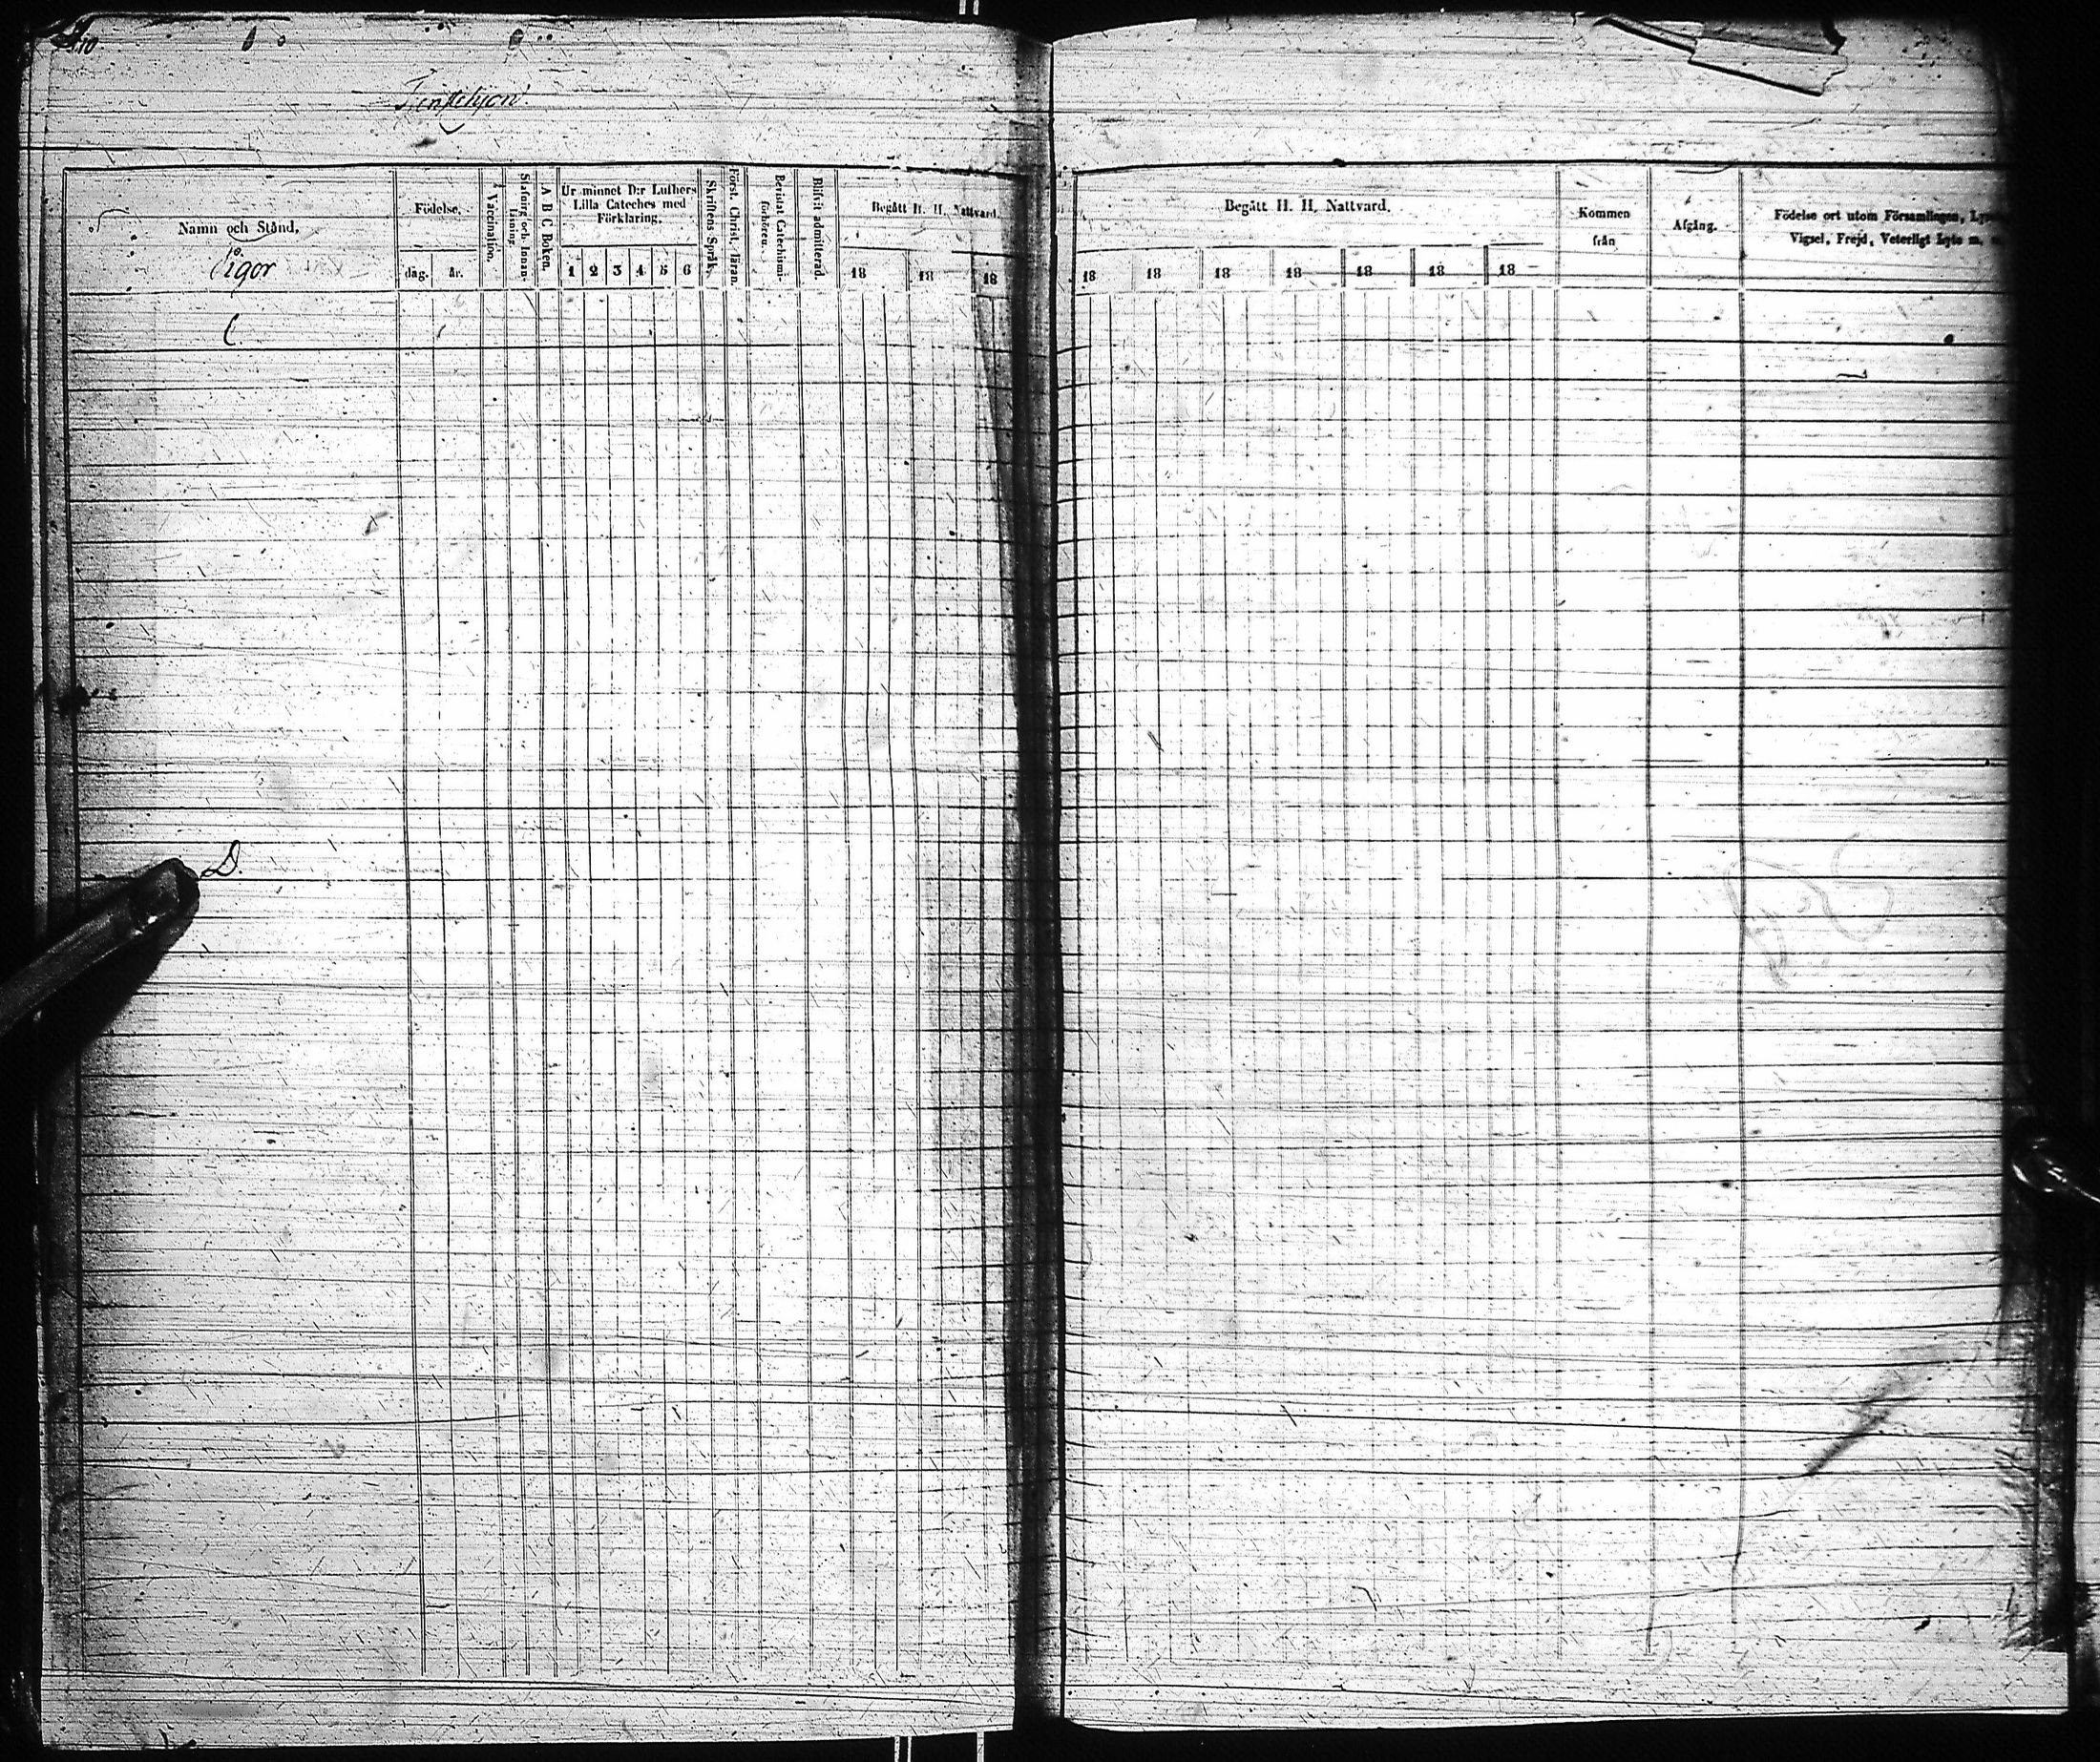 Namn och Stånd,
Födelse.
dag. år.
Vaccination.
Stafning och innan-läsning
A B C Boken.
Ur minnet D:r Luthers
Lilla Cateches med
Förklaring.
1 2 3 4 5 6
Skriftens Språk.
Först. Christ. läran.
Bevistat Catechismi-förhören.
Blifvit admitterad.
Begått H. H. Nattvard.
18 18 18
C
D.
Begått H. H. Nattvard.
18 18 18 18 18 18 18
Kommen
från
Afgång.
Födelse ort utom Församlingen,
Vigsel, Frejd, Veterligt Lyte m.